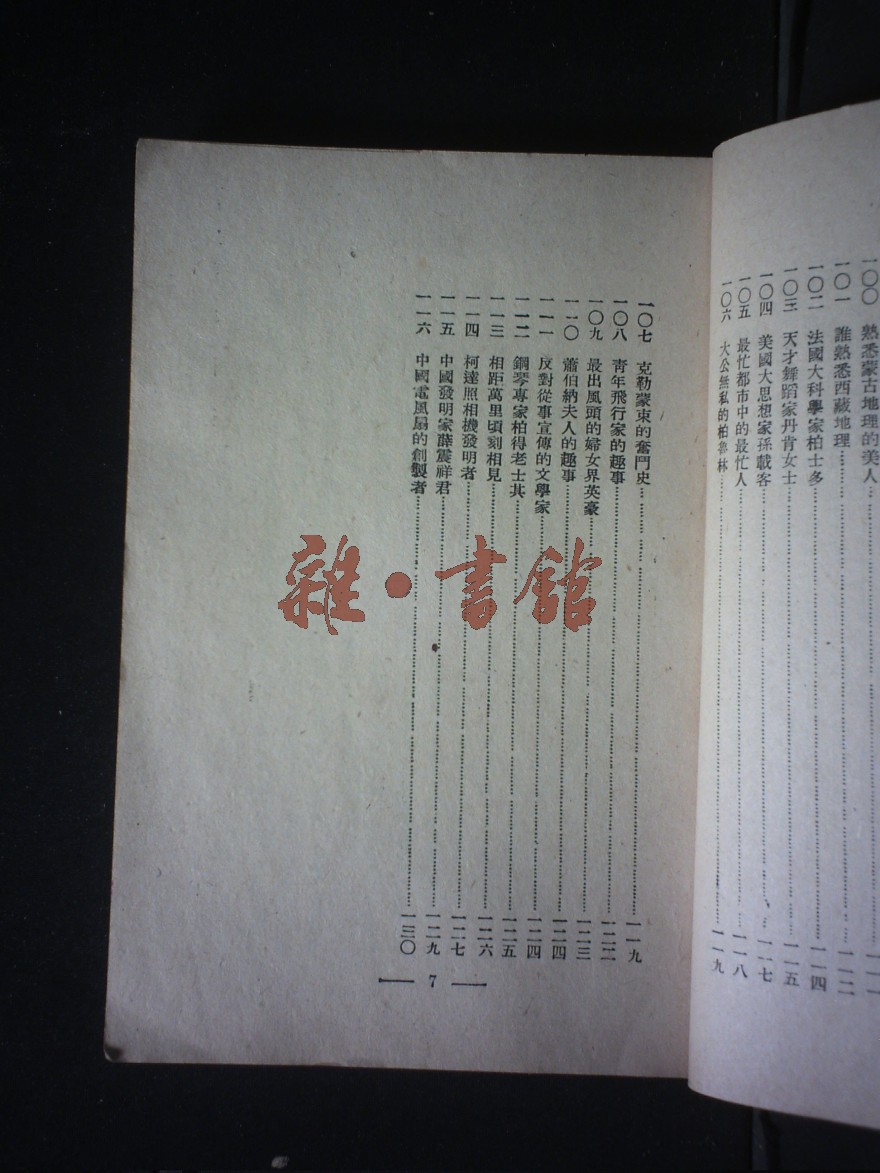 一〇〇 熟悉蒙古地理的美人 一一一
一〇一 誰熟悉西藏地理 一一二
一〇二 法國大科學家柏士多 一一四
一〇三 天才舞蹈家丹肯女士 一一五
一〇四 美國大思想家孫載客 一一七
一〇五 最忙都市中的最忙人 一一八
一〇六 大公無私的柏魯林 一一九
一〇七 克勒蒙束的奮鬥史 一一九
一〇八 青年飛行家的趣事 一二二
一〇九 最出風頭的婦女界英豪 一二三
一一〇 蕭伯納夫人的趣事 一二四
一一一 反對從事宣傳的文學家 一二四
一一二 鋼琴專家柏得老士其 一二五
一一三 相距萬里頃刻相見 一二六
一一四 柯達照相機發明者 一二七
一一五 中國發明家薛震祥君 一二九
一一六 中國電風扇的創製者 一三〇
— 7 —
雜·書館